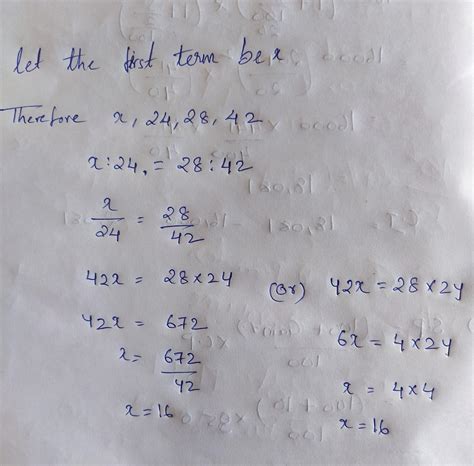 let the first term be x
Therefore x, 24, 28, 42
x : 24, = 28 : 42
x/24 = 28/42
42x = 28×24 (Or) 42x = 28×24
42x = 672
6x = 4×24
x = 672/42
x = 4×4
x = 16
x = 16